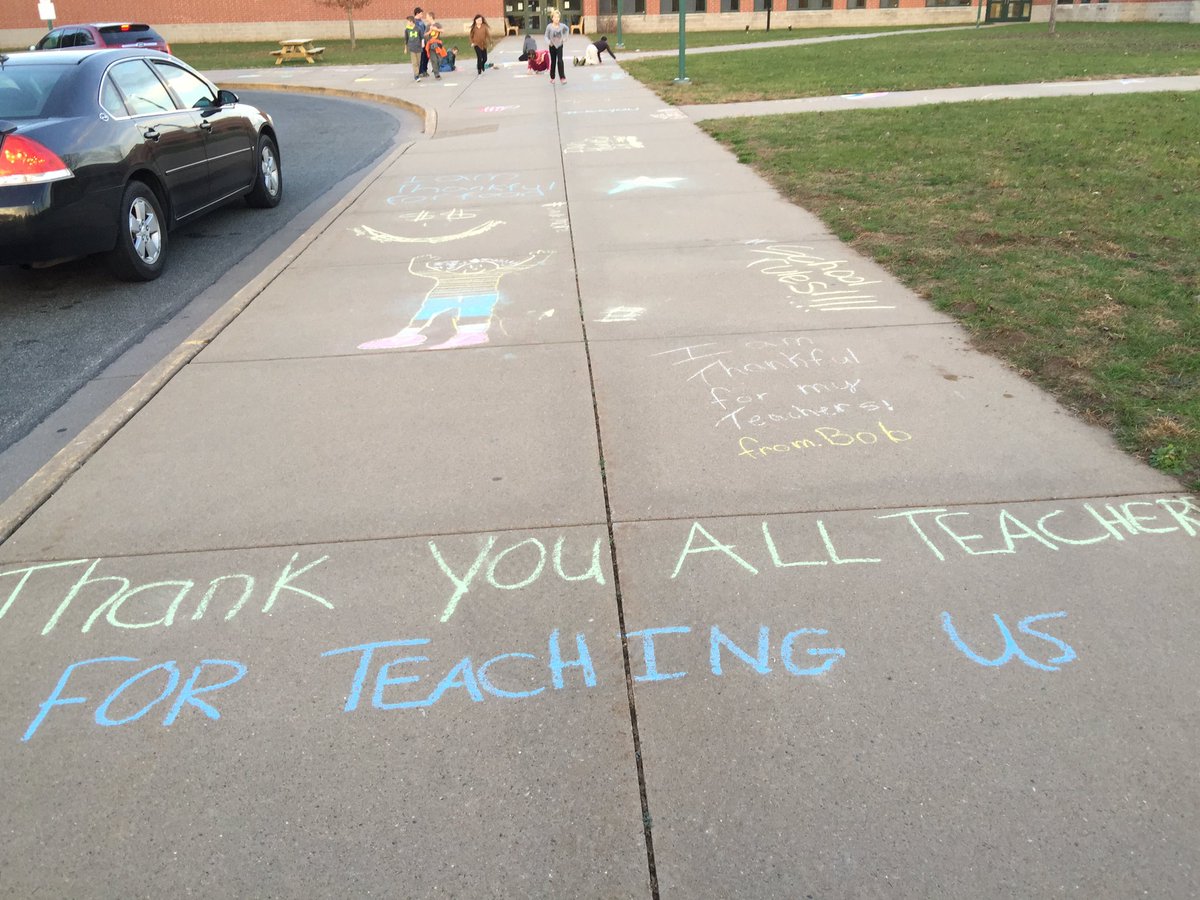 I am
Thankful
for food!
$ $
School
rules!!!!
I am
Thankful
for my
Teachers!
from Bob
Thank You ALL TEACHER
FOR TEACHING US